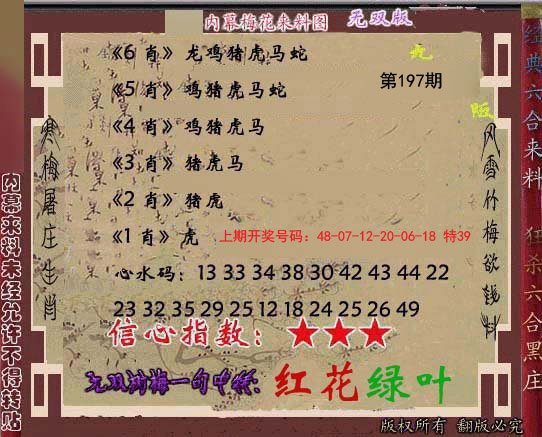 内幕梅花来料图 无双版
《6 肖》 龙鸡猪虎马蛇
第197期
《5 肖》 鸡猪虎马蛇
《4 肖》 鸡猪虎马
《3 肖》 猪虎马
《2 肖》 猪虎
《1 肖》 虎 上期开奖号码：48-07-12-20-06-18 特39
心水码：13 33 34 38 30 42 43 44 22
23 32 35 29 25 12 18 24 25 26 49
信心指数：★★★
红花绿叶
版权所有 翻版必究
寒梅屠庄生肖
内幕来料未经允许不得转贴
风雪竹梅欲钱料
经典六合来料
狂杀六合黑庄